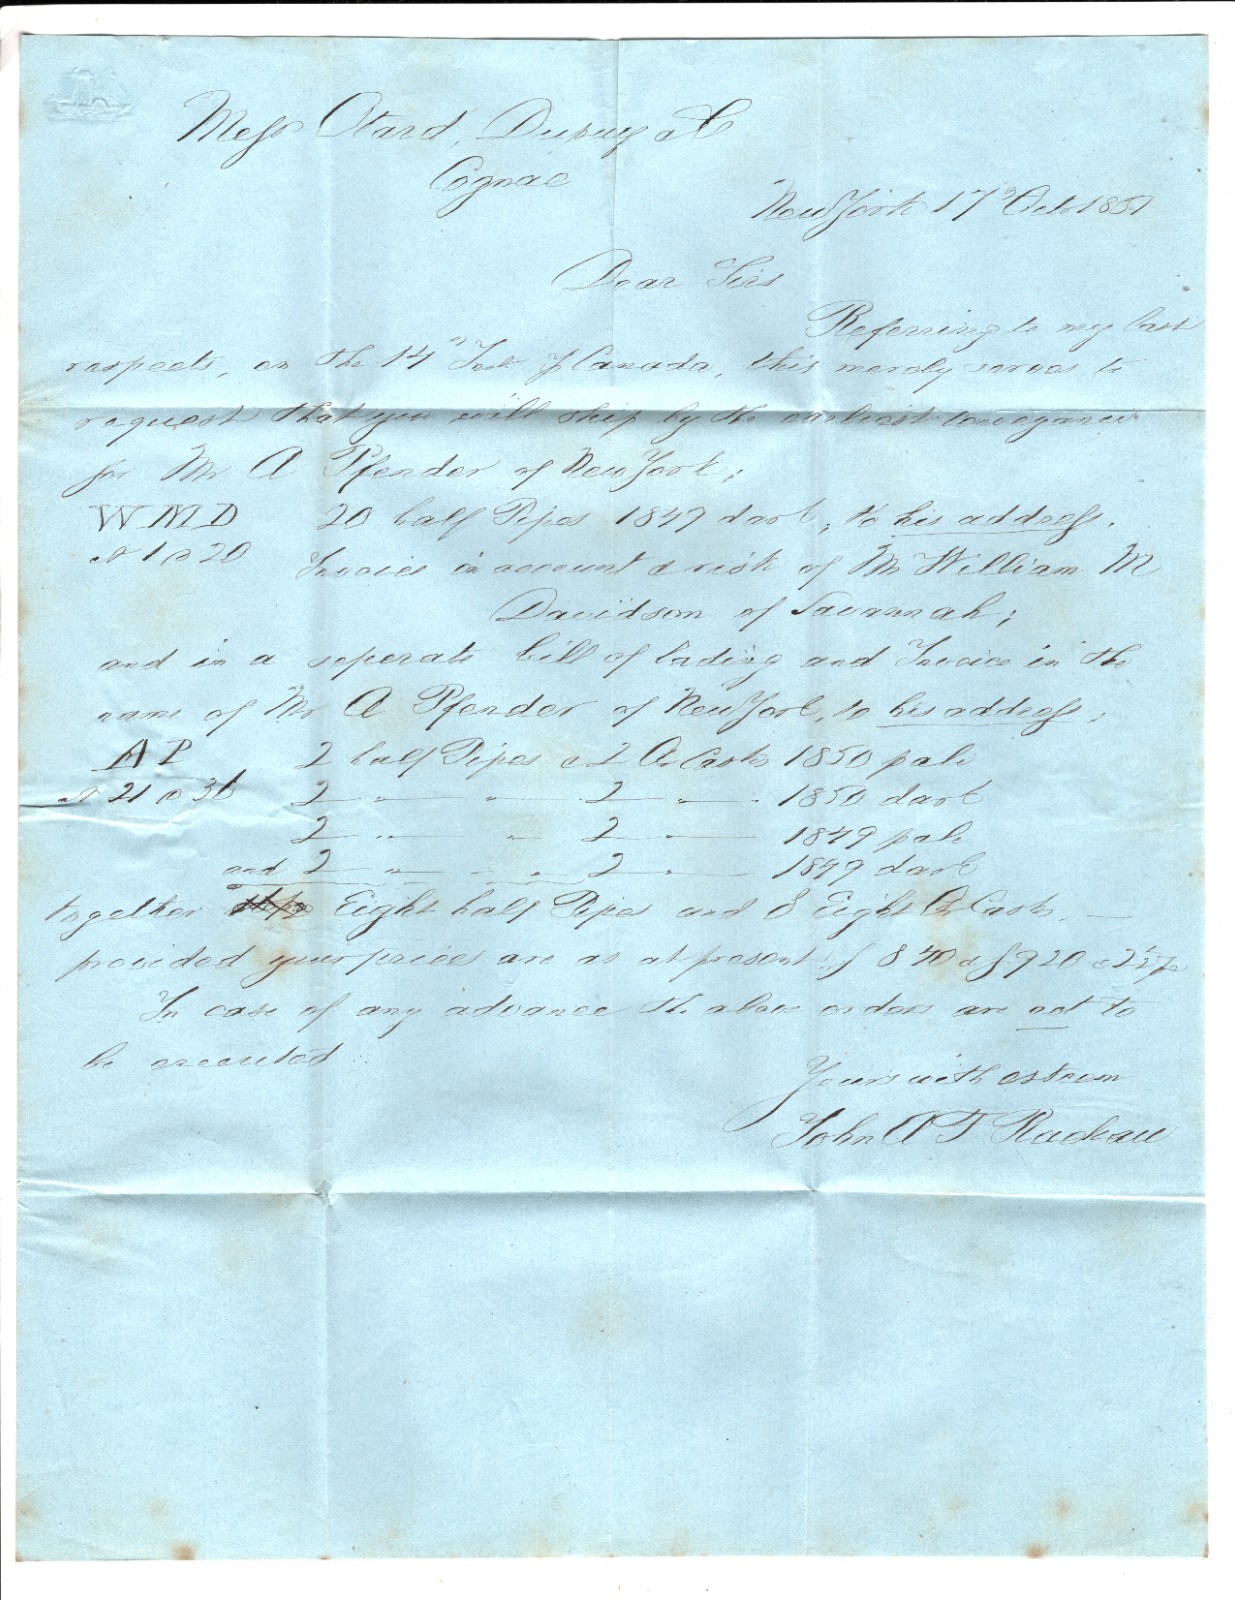 Messrs Otard, Dupuy & Co
Cognac
New York 17th Octr 1851
Dear Sirs
Referring to my last
respects, on the 14th Inst pr Canada, this merely serves to
request that you will ship by the earliest conveyance
for Mr A Pfender of New York;
WMD 20 half Pipes 1849 dark, to his address.
N 1 @ 20 Invoice in account & risk of Mr William M
Davidson of Savannah;
and in a seperate bill of lading and Invoice in the
name of Mr A Pfender of New York, to his address,
AP 2 half Pipes & 2 Qr Casks 1850 pale
N 21 @ 36 2 " " 2 " " 1850 dark
2 " " 2 " 1849 pale
and 2 " " 2 " 1849 dark
together Eight half Pipes and 8 Eight Qr Casks, —
provided your prices are as at present f 840 & f 920
In case of any advance the above orders are not to
be executed
Yours with esteem
John A T